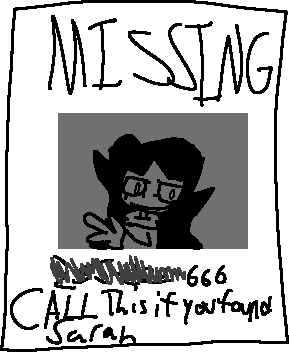 MISSING
666
CALL This if you found
Sarah